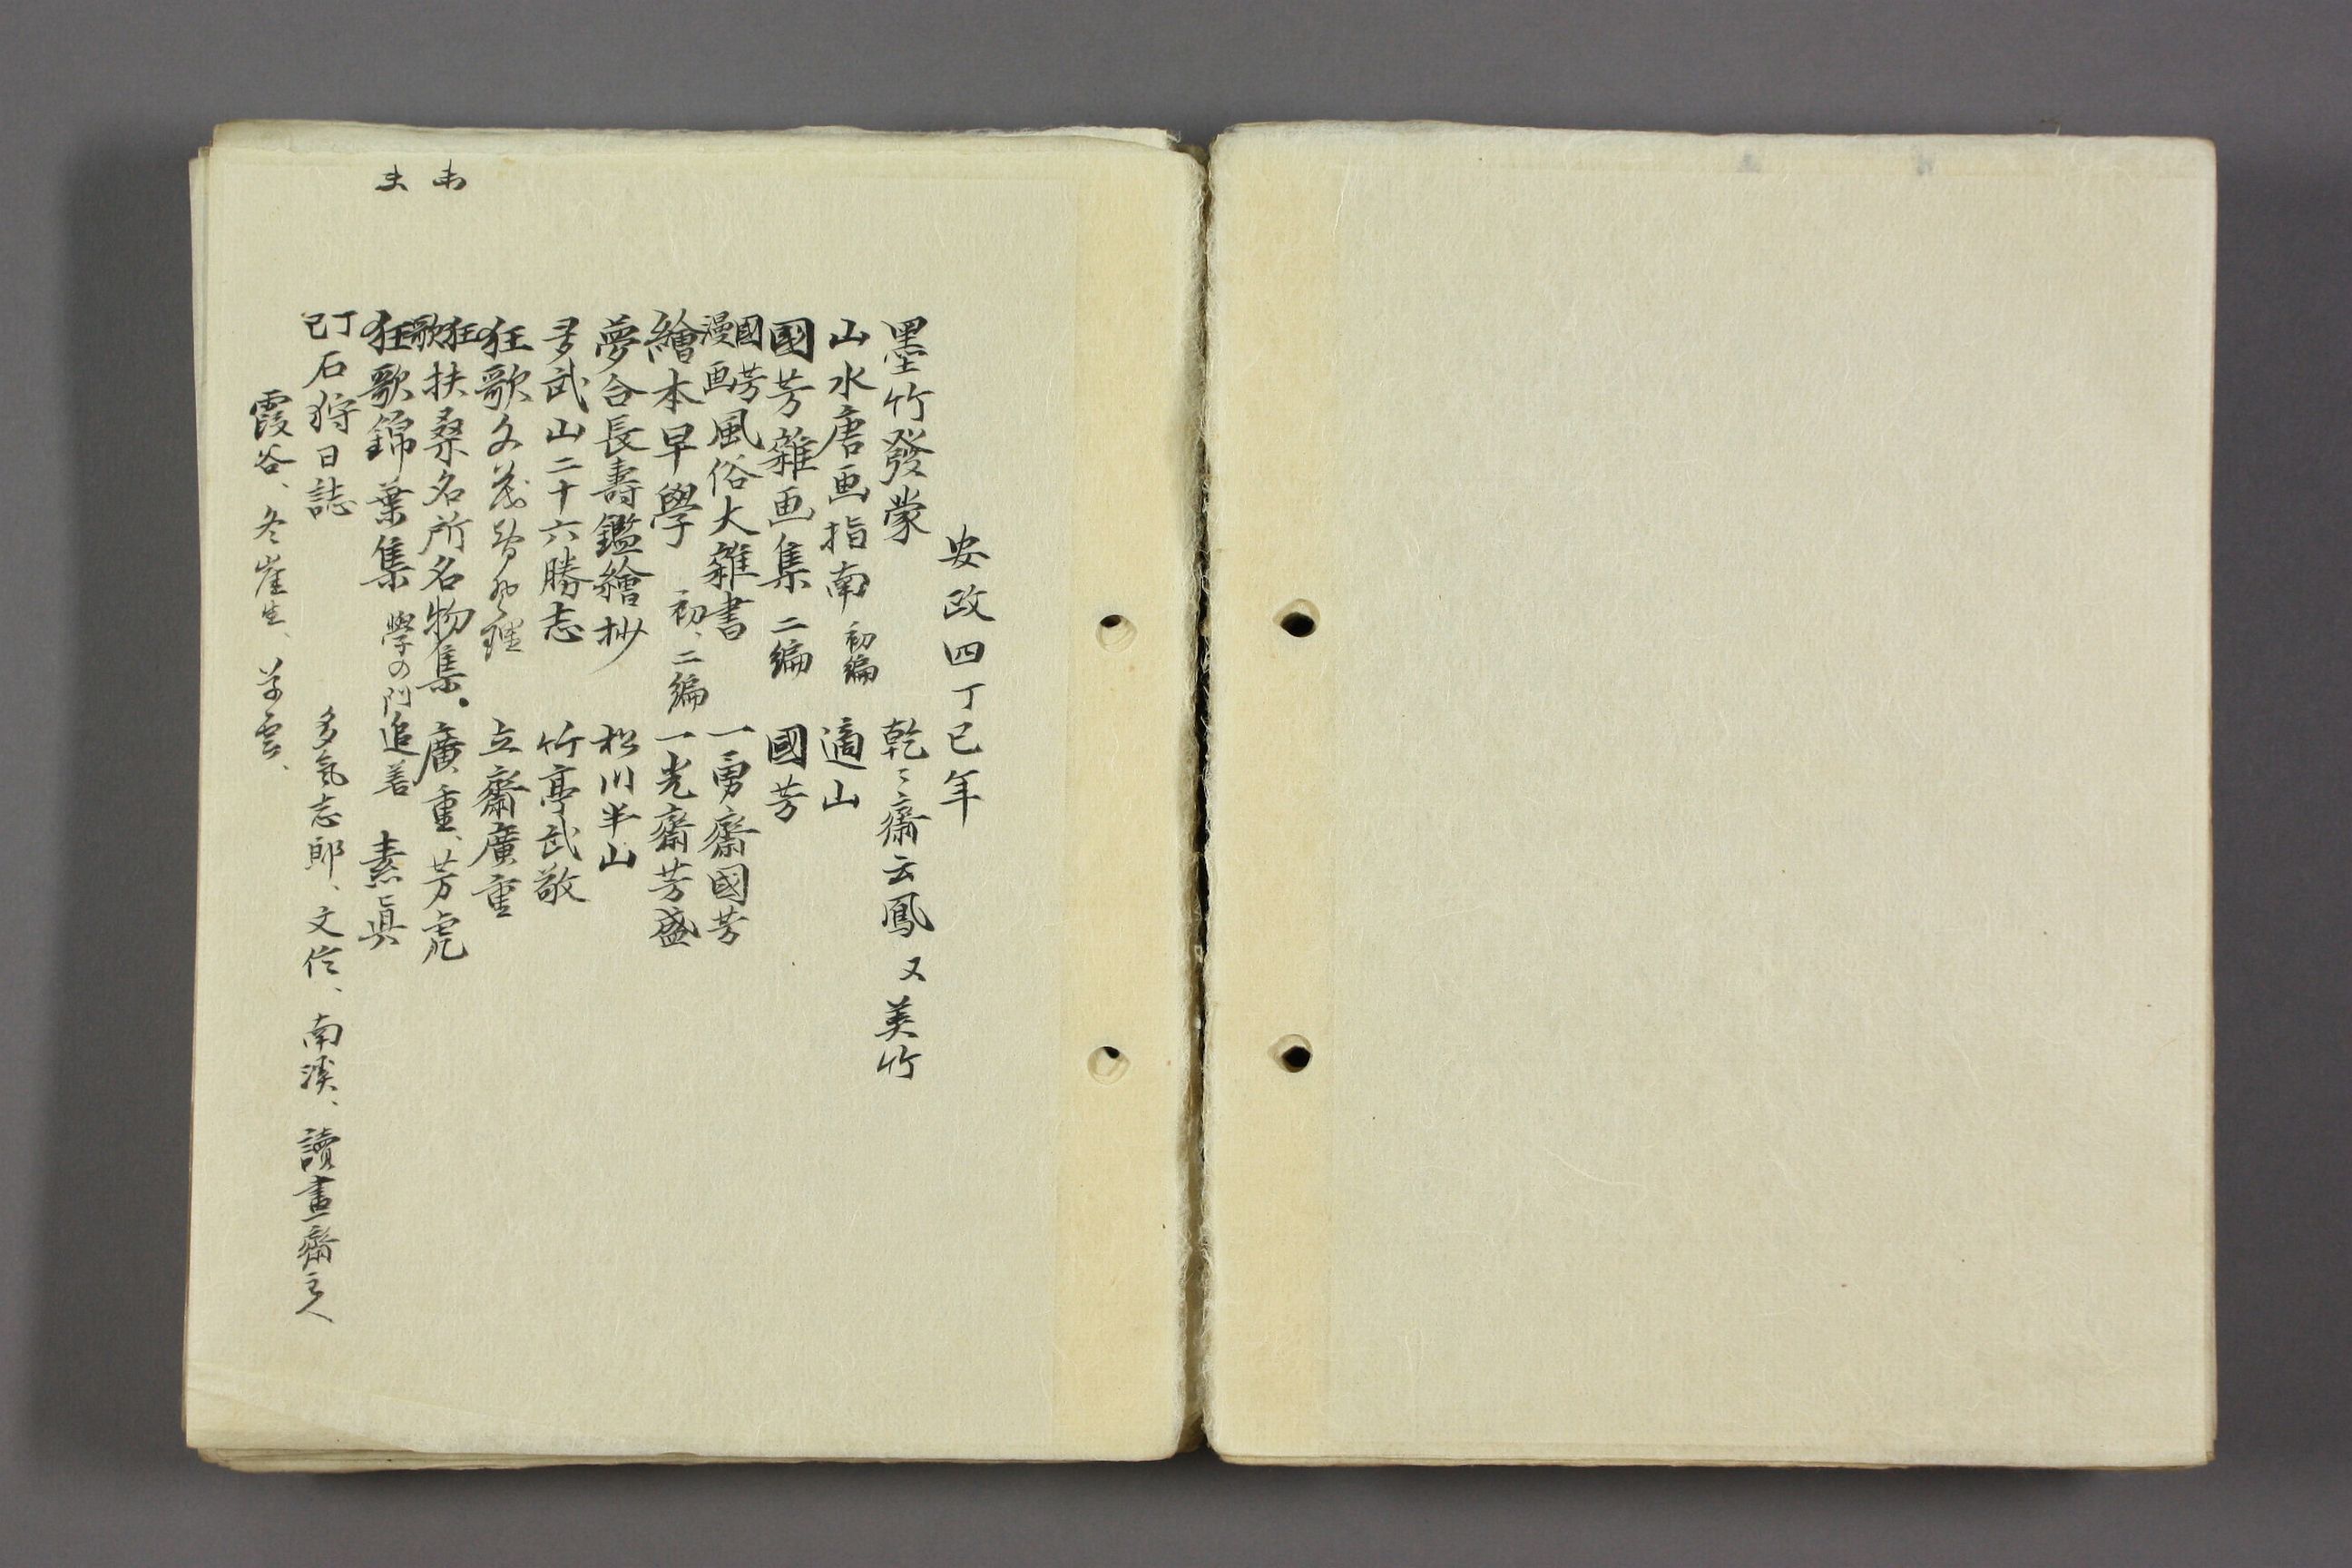 安政四丁巳年
墨竹發蒙　乾〻齋云鳳　又美竹
山水唐画指南　初編　適山
國芳雜画集　二編　國芳
國芳漫画　風俗大雜書　一勇齋國芳
繪本早學　初、二編　一光齋芳盛
夢合長壽鑑繪抄　松川半山
多武山二十六勝志　竹亭武敬
狂歌文茂智　立齋廣重
狂歌　扶桑名所名物集.　廣重、芳虎
狂歌錦葉集　學の門追善　素真
丁巳　石狩日誌　多氣志郎、文信、南溪、讀畫齋主人
霞谷、冬崖生、草雲、